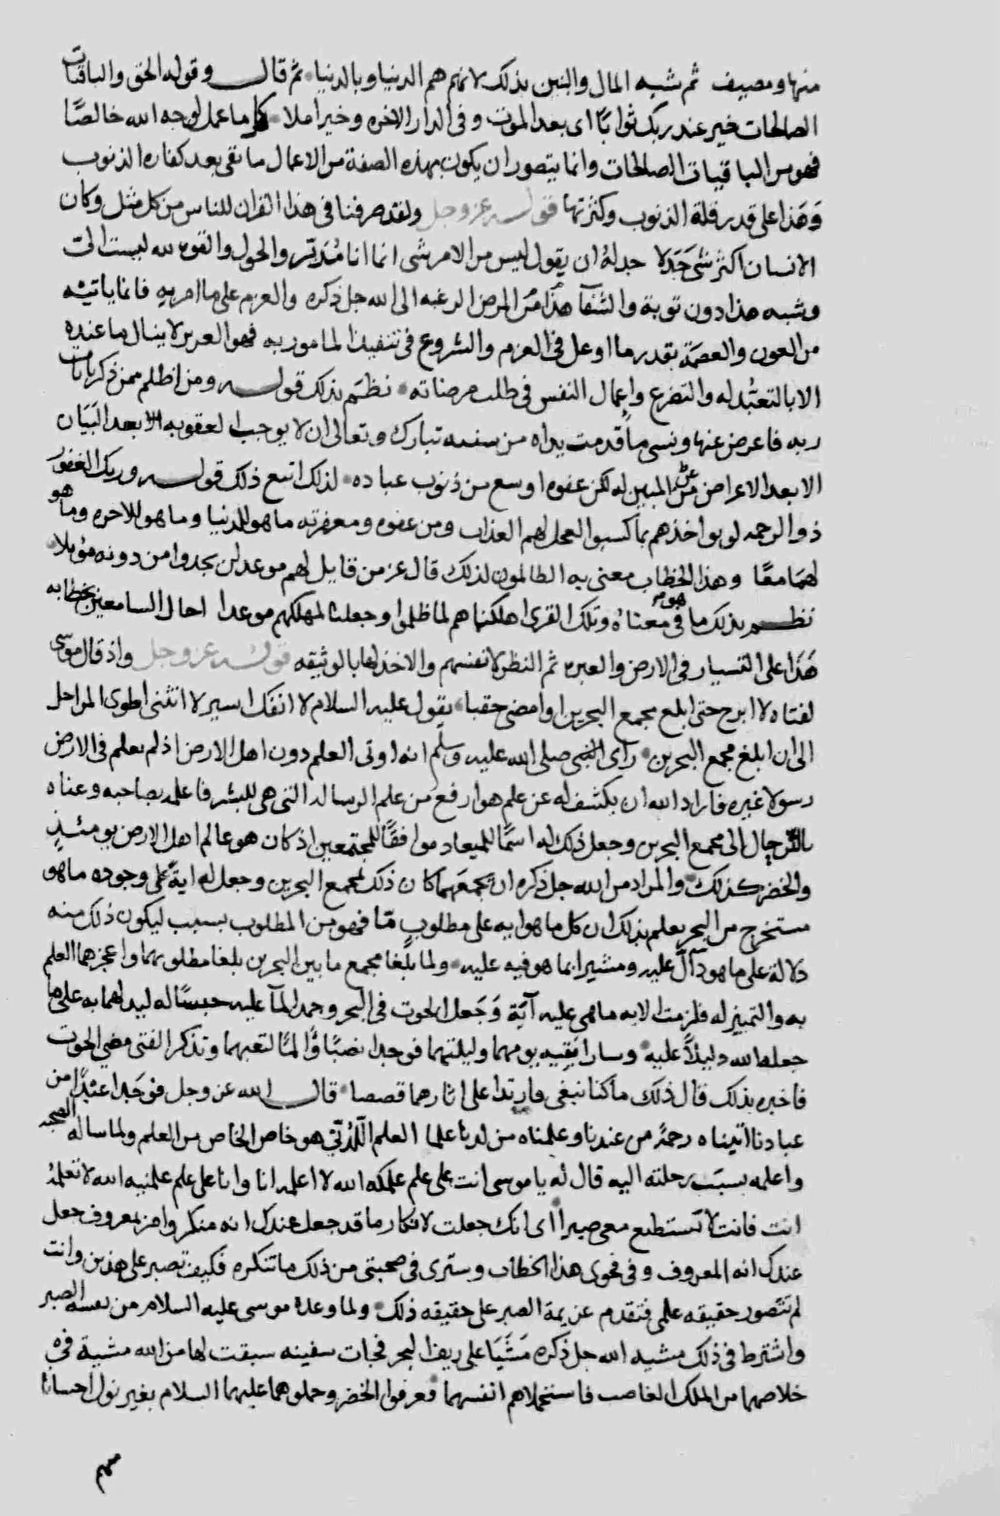 منها ومصيف ثم شبه المال والبنين بذلك لانهم هم الدنيا وبالدنيا ثم قال وقوله الحق والباقيات
الصالحات خير عند ربك ثوابًا اى بعد الموت وفى الدار الاخره وخير املا كل ما عمل لوجه الله خالصًا
فهو من الباقيات الصالحات وانما يتصور ان يكون بهذه الصفة من الاعمال ما بقى بعد كفاره الذنوب
وهذا على قدر قلة الذنوب وكثرتها قوله عز وجل ولقد صرفنا فى هذا القران للناس من كل مثل وكان
الانسان اكثر شى جدلا جدله ان يقول ليس من الامر شى انما انا مدبر والحول والقوه لله ليست الى
وشبه هذا دون توبة والشفآ هذا من المرض الرغبه الى الله جل ذكره والعزم على ما امر به فانما ياتيه
من العون والعصمة بقدر ما اوعل فى العزم والشروع فى تنفيذ المامور به فهو العزيز لا ينال ما عنده
الا بالتعبد له والتضرع واعمال النفس فى طلب مرضاته نظم بذلك قوله ومن اظلم ممن ذكر بايات
ربه فاعرض عنها ونسى ما قدمت يداه من سننه تبارك وتعالى ان لا يوجب العقوبه الا بعد البيان
الا بعد الاعراض عن المبين له لكن عفوه اوسع من ذنوب عباده لذلك اتبع ذلك قوله وربك الغفور
ذو الرحمه لو يواخذهم بما كسبوا لعجل لهم العذاب ومن عفوه ومغفرته ما هو للدنيا وما هو للاخره وما هو
لهما معًا وهذا الخطاب معنى به الظالمون لذلك قال عز من قايل لهم موعد لن يجدوا من دونه موئلا
نظم بذلك ما هو فى معناه وتلك القرى اهلكناهم لما ظلموا وجعلنا لمهلكهم موعدا احال السامعين بخطابه
هذا على التسيار فى الارض والعبره ثم النظر لانفسهم والاخذ لها بالوثيقه قوله عز وجل واذ قال موسى
لفتاه لا ابرح حتى ابلغ مجمع البحرين او امضى حقبا يقول عليه السلام لا انفك اسير لا انثنى اطوى المراحل
الى ان ابلغ مجمع البحرين راى النبى صلى الله عليه وسلم انه اوتى العلم دون اهل الارض اذ لم يعلم فى الارض
رسولا غيره فاراد الله ان يكشف له عن علم هو ارفع من علم الرساله التى هى للبشر فاعلمه بصاحبه وعناه
بالترحال الى مجمع البحرين وجعل ذلك له اسمًا للميعاد موافقًا للمجتمعين اذ كان هو عالم اهل الارض يومئذ
والخضر كذلك والمراد من الله جل ذكره ان يجمعهما كان ذلك لمجمع البحرين وجعل له اية على وجوده ما هو
مستخرج من البحر يعلم بذلك ان كل ما هو ايه على مطلوب ما فهو من المطلوب بسبب ليكون ذلك منه
دلالة على ما هو دآل عليه ومشيرا بما هو فيه عليه ولما بلغا مجمع ما بين البحرين بلغا مطلوبهما واعجزهما العلم
به والتمييز له فلزمت الايه ما هى عليه آية وجعل الحوت فى البحر وجمد المآ عليه حبسًا له ليدلهما به على ما
جعله الله دليلًا عليه وسارا بقيه يومهما وليلتهما فوجدا نصبًا وألمًا لتعبهما وتذكر الفتى مضى الحوت
فاخبره بذلك قال ذلك ما كنا نبغى فارتدا على اثارهما قصصا قال الله عز وجل فوجدا عبدًا من
عبادنا اتيناه رحمة من عندنا وعلمناه من لدنا علما العلم اللدنى هو خاص الخاص من العلم ولما ساله الصحبه
واعلمه بسبب رحلته اليه قال له يا موسى انت على علم علمكه الله لا اعلمه انا وانا على علم علمنيه الله لا تعلمه
انت فانت لا تستطيع معى صبرا اى انك جعلت لانكار ما قد جعل عندك انه منكر وامر بمعروف جعل
عندك انه المعروف وفى فحوى هذا الخطاب وسترى فى صحبتى من ذلك ما تنكره فكيف تصبر على هذين وانت
لم تتصور حقيقه علمى فتقدم عزيمة الصبر على حقيقه ذلك ولما وعده موسى عليه السلام من نفسه الصبر
واشترط فى ذلك مشيه الله جل ذكره مشيا على ريف البحر فجات سفينه سبقت لها من الله مشية فى
خلاصهما من الملك الغاصب فاستحملاهم انفسهما فعرفوا الخضر وحملوهما عليهما السلام بغير نول احسانا